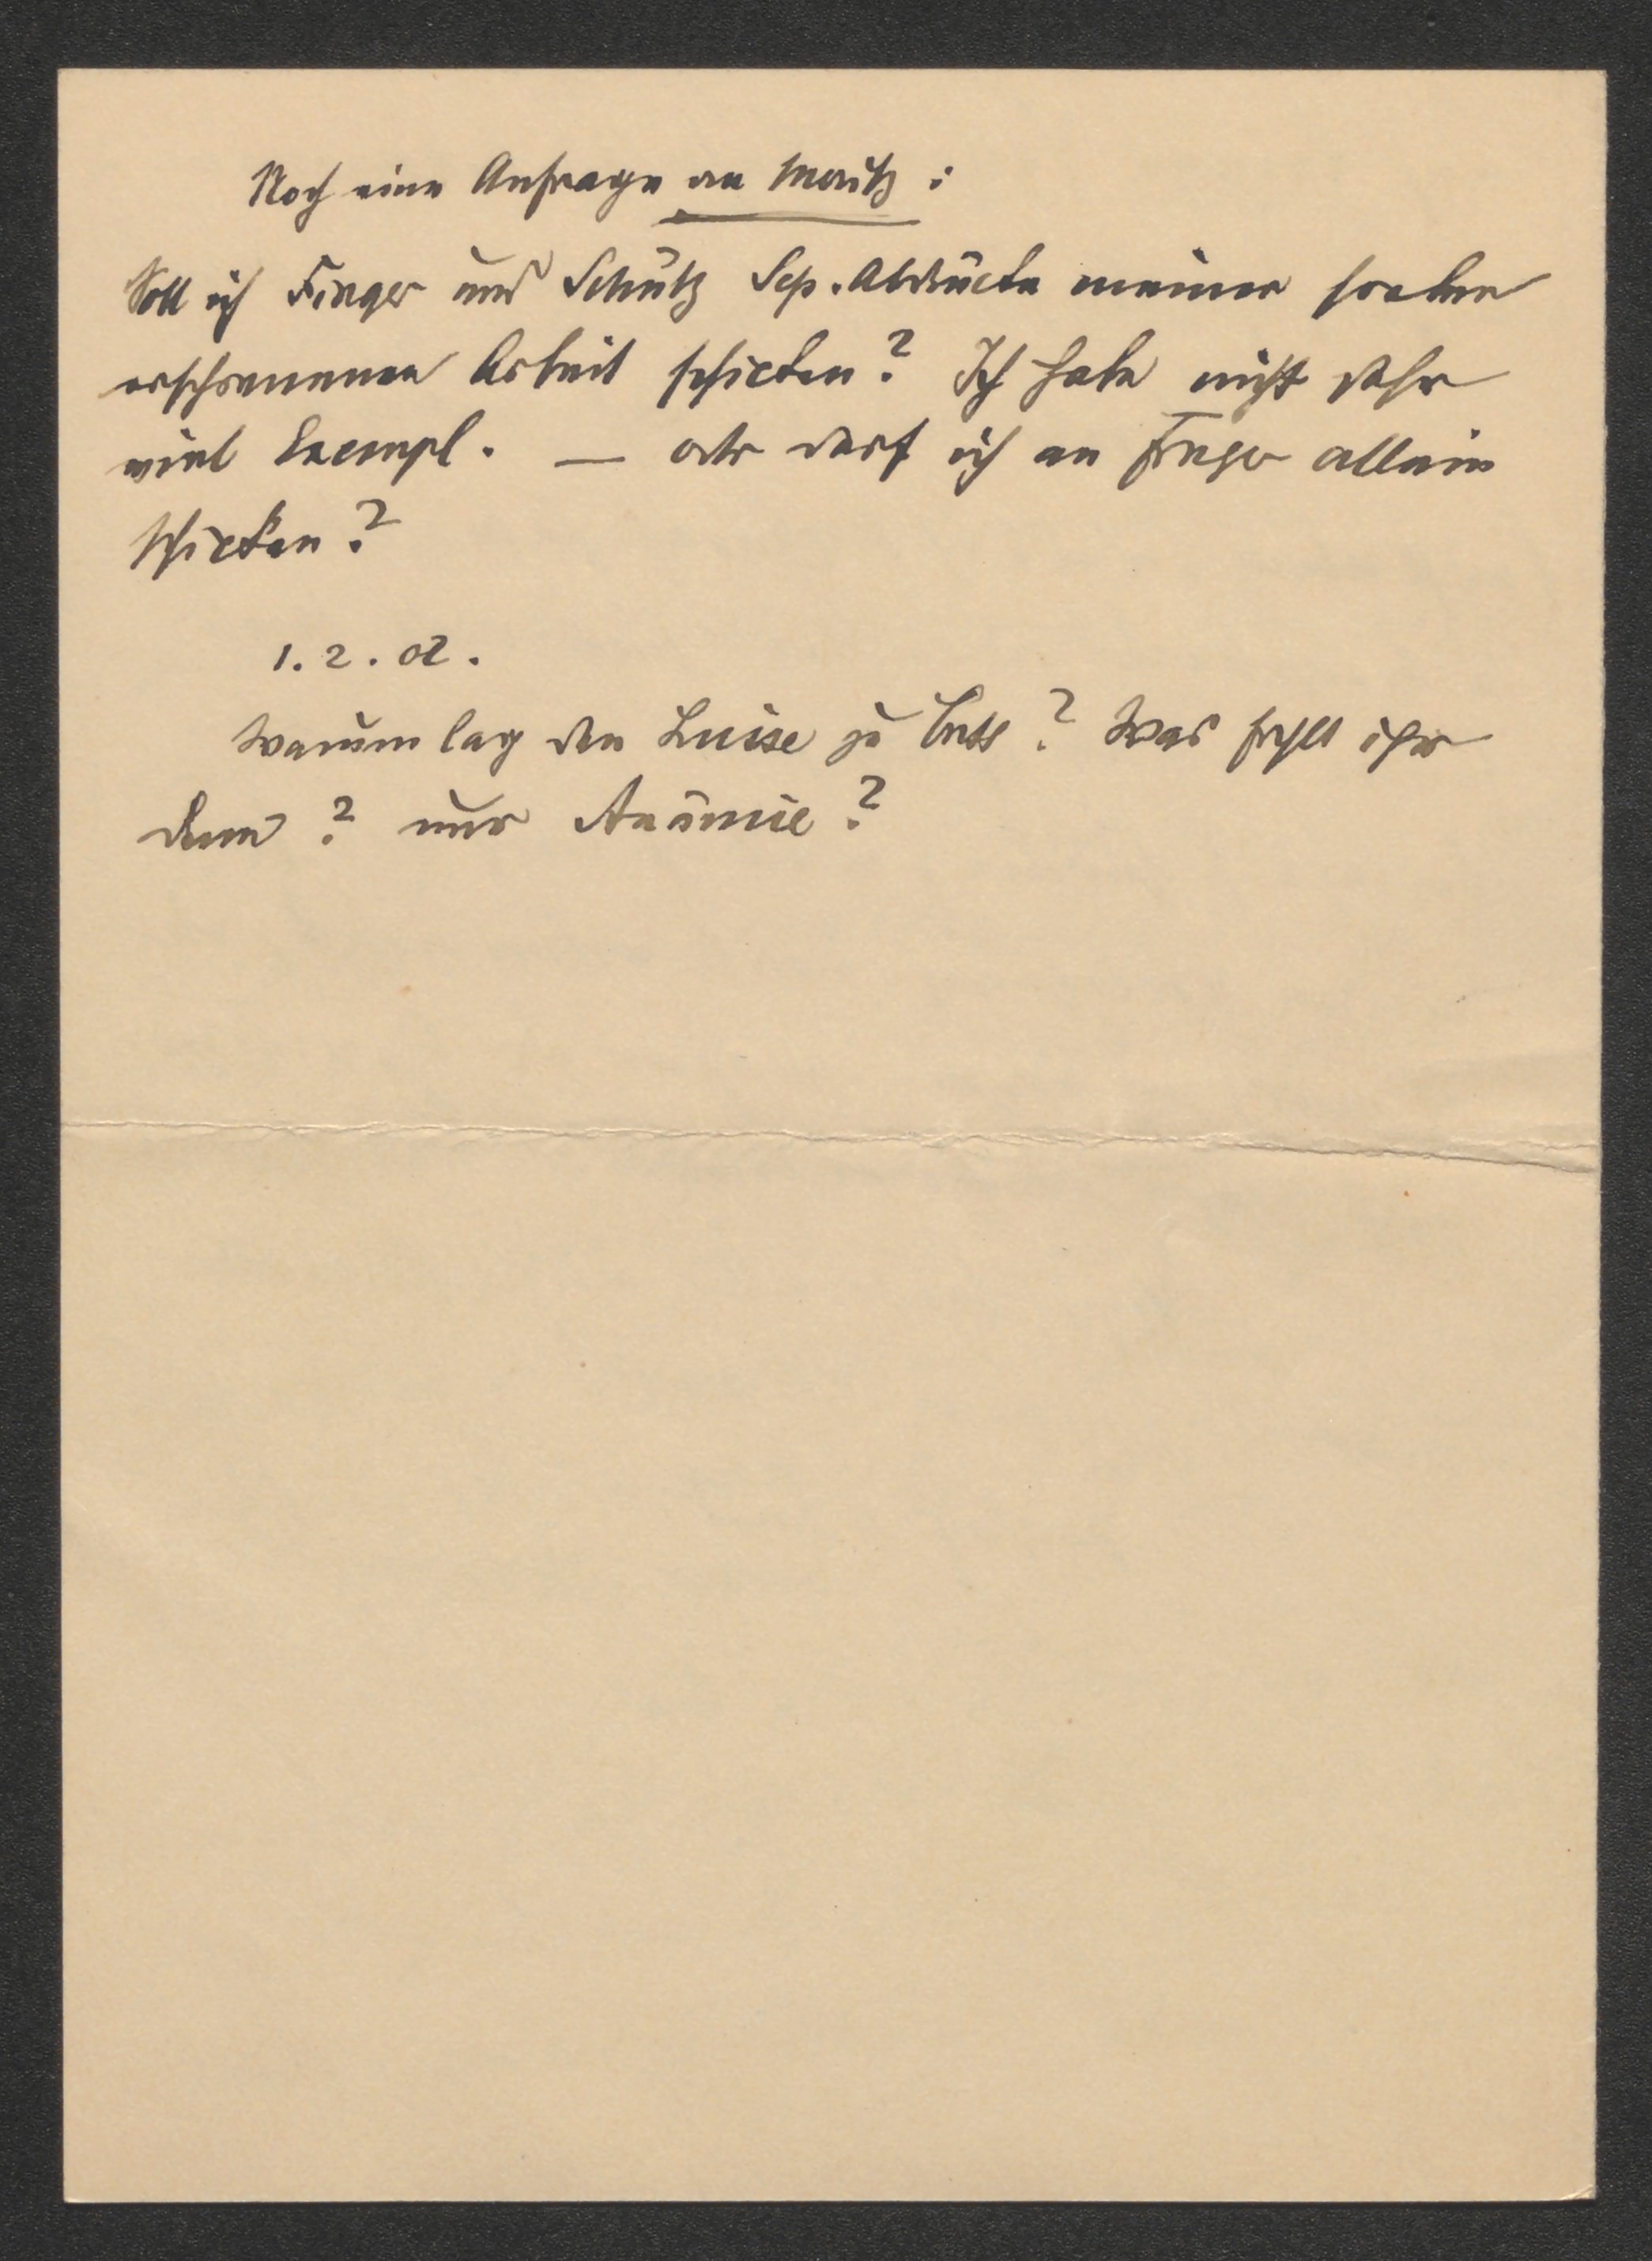 Noch eine Anfrage an Moritz:
Soll ich Finger und Schütz Sep. Abdrücke meiner soeben
erschienenen Arbeit schicken? Ich habe nicht sehr
viel Exempl. — oder darf ich an Finger allein
schicken?
1.2.02.
Warum lag den Luise zu Bett? Was fehlt ihr
denn? nur Anämie?